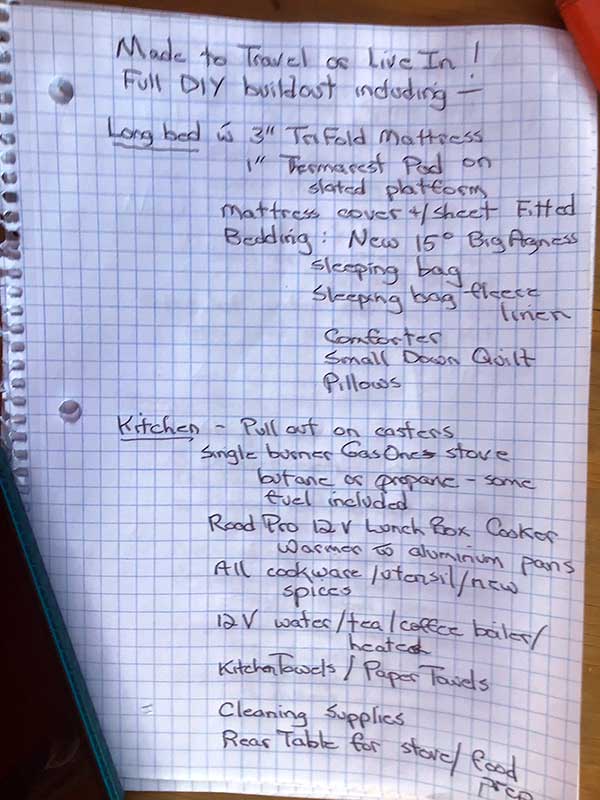 Made to Travel or Live In!
Full DIY buildout including —
Long bed w 3" TriFold Mattress
1" Termarest Pad on
slated platform
Mattress cover +/sheet Fitted
Bedding: New 15° Big Agness
sleeping bag
Sleeping bag fleece
linen
Comforter
Small Down Quilt
Pillows
Kitchen - Pull out on casters
Single burner GasOnes stove
butane or propane - some
fuel included
Road Pro 12V Lunch Box Cooker
warmer w aluminium pans
All cookware/utensil/new
spices
12V water/tea/coffee boiler/
heater
Kitchen Towels / Paper Towels
Cleaning Supplies
Rear Table for stove/food
prep